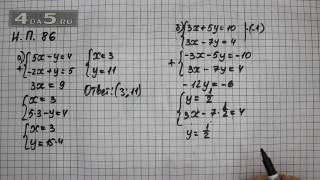 4DA5.RU
И.П. 86
а) {5x-y=4
+ {-2x+y=5
3x = 9
{x=3
{5·3-y=4
{x=3
{y=15-4
{x=3
{y=11
Ответ: (3,11)
б) {3x+5y=10 |·(-1)
{3x-7y=4
+ {-3x-5y=-10
{3x-7y=4
-12y=-6
{y=1/2
{3x-7·1/2=4
y=1/2